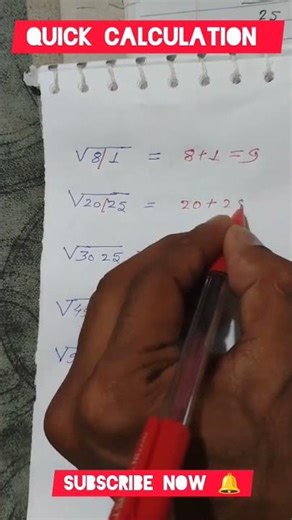 25
QUICK CALCULATION
√8/1 = 8+1=9
√20/25 = 20+2
√3025
SUBSCRIBE NOW 🔔